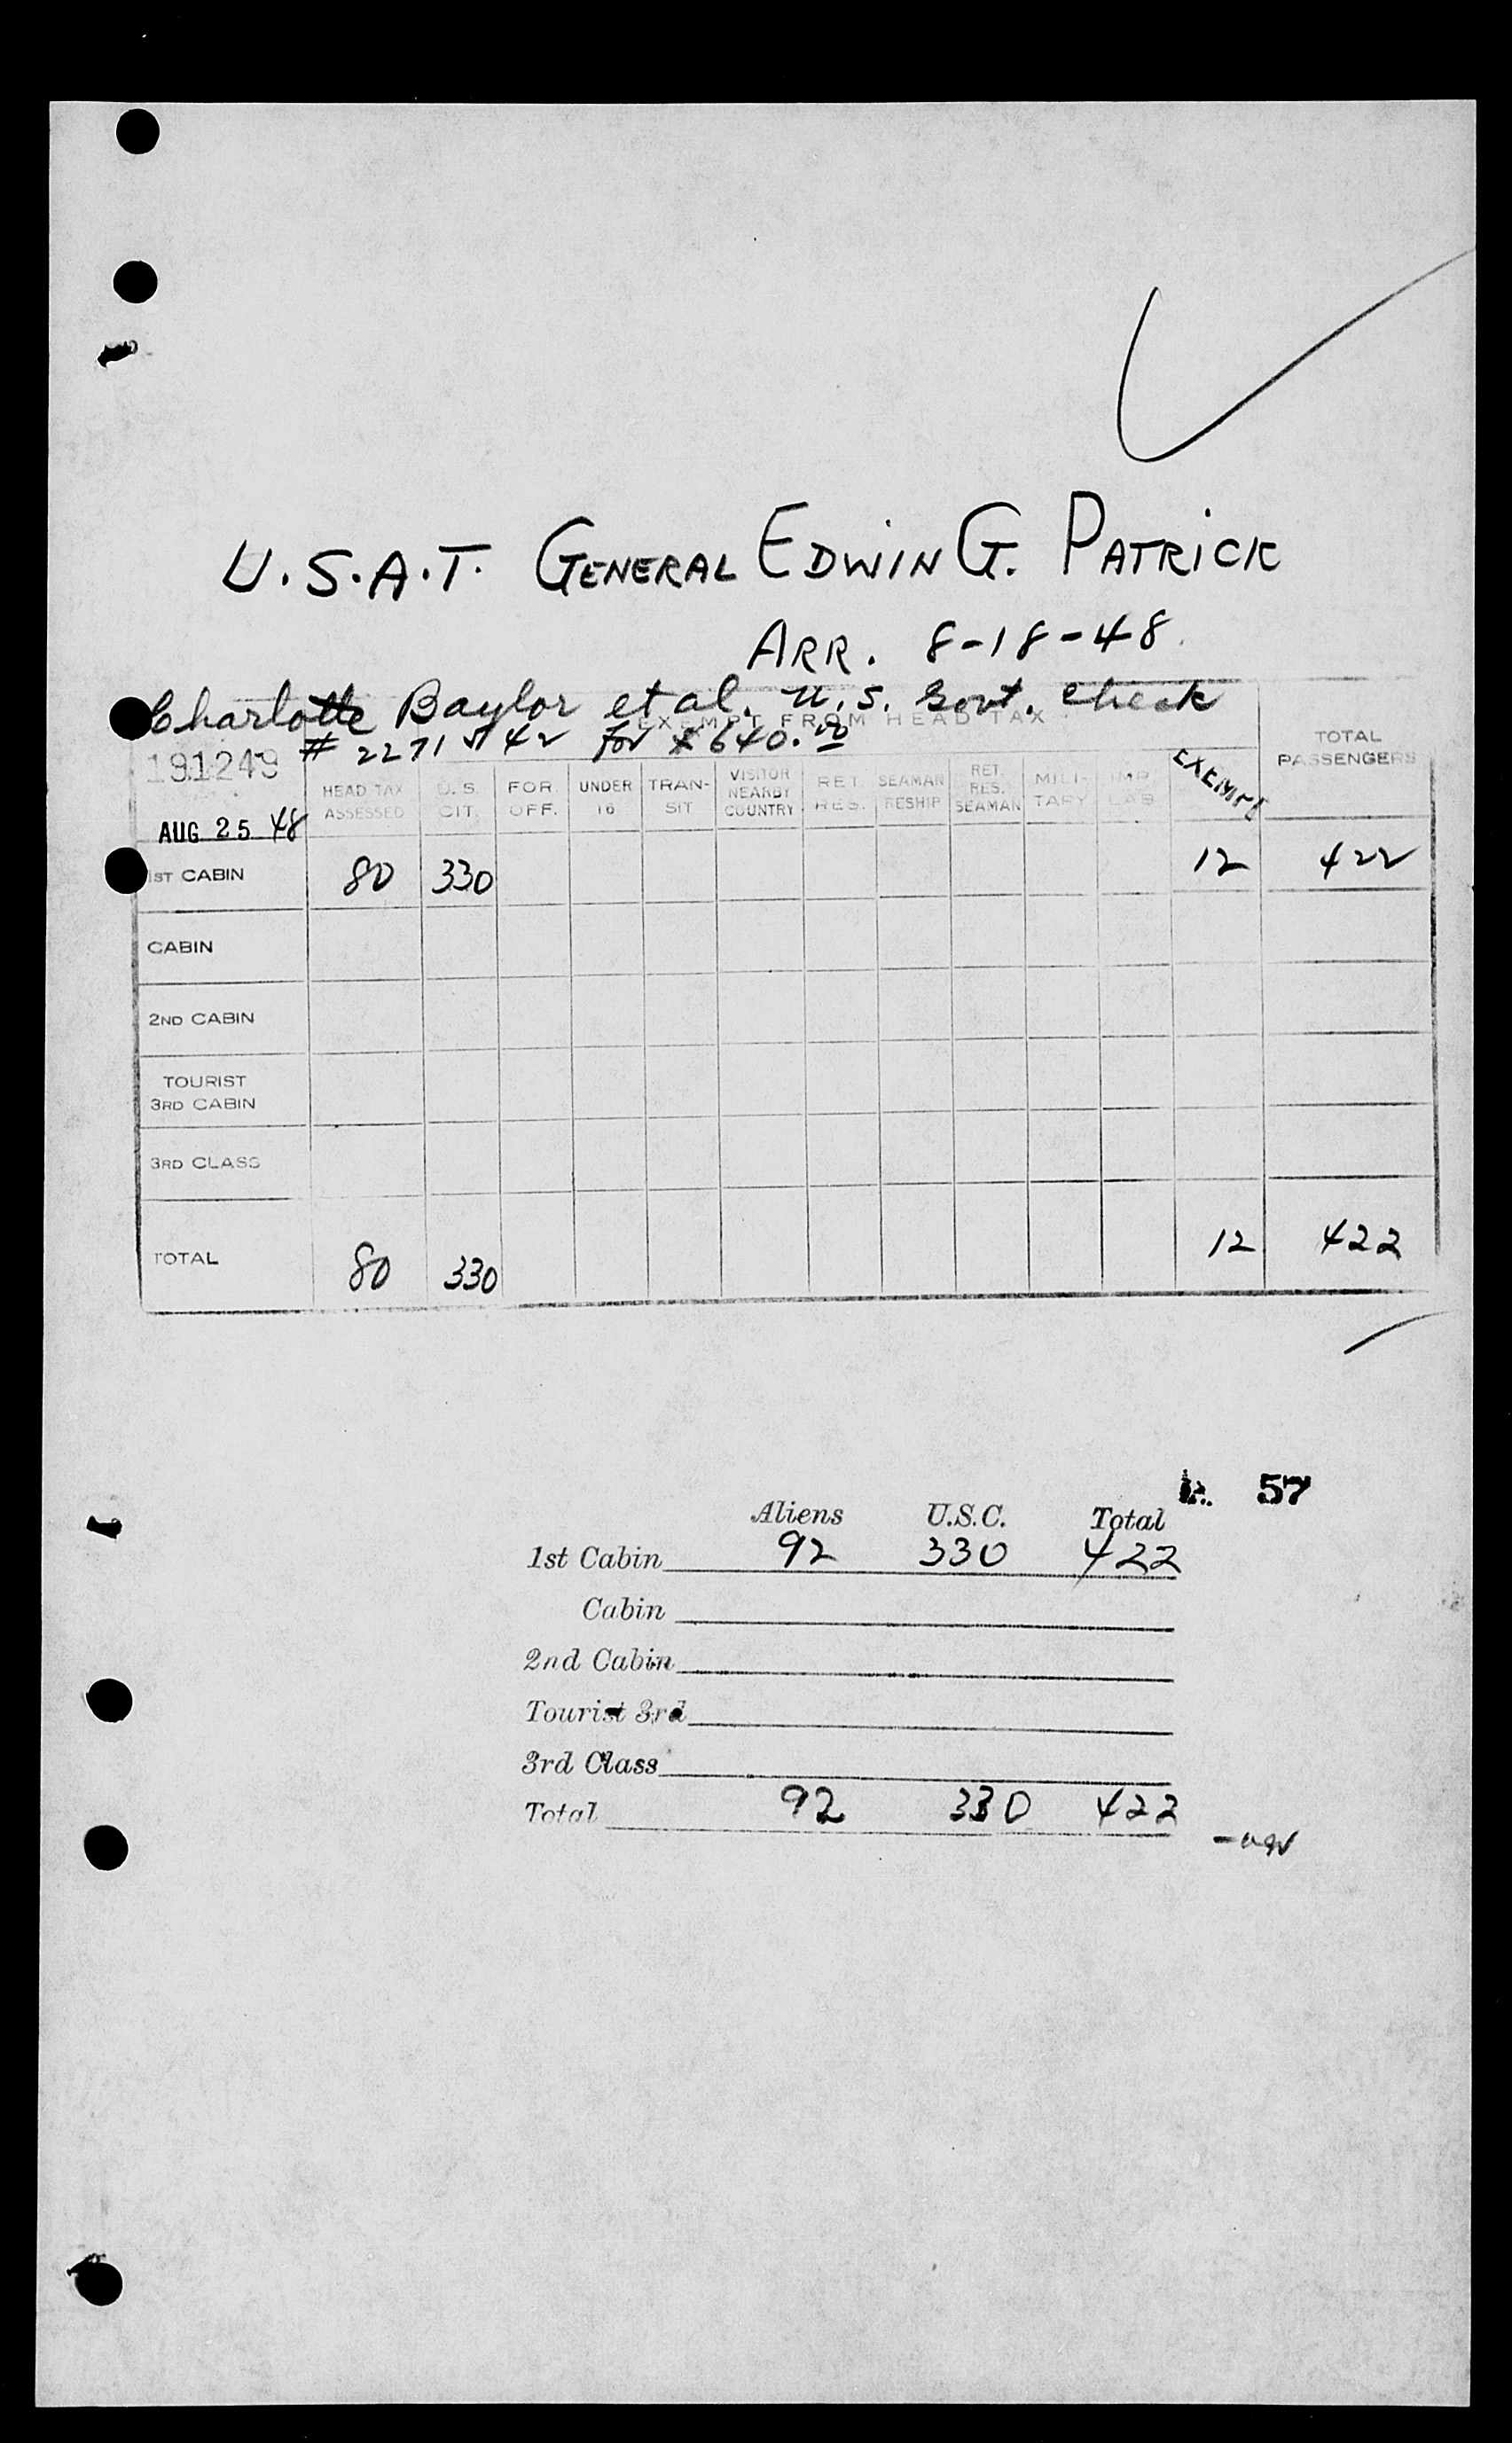 U.S.A.T. GENERAL EDWIN G. PATRICK
ARR. 8-18-48
Charlotte Baylor et al. U.S. Govt. check
EXEMPT FROM HEAD TAX
# 2271542 for $640.00
191249
AUG 25 48
HEAD TAX ASSESSED
U. S. CIT.
FOR. OFF.
UNDER 16
TRAN- SIT
VISITOR NEARBY COUNTRY
RET. RES.
SEAMAN RESHIP
RET. RES. SEAMAN
MILI- TARY
IMP. LAB.
EXEMPT
TOTAL PASSENGERS
1ST CABIN 80 330 12 422
CABIN
2ND CABIN
TOURIST
3RD CABIN
3RD CLASS
TOTAL 80 330 12 422
57
Aliens U.S.C. Total
1st Cabin 92 330 422
Cabin
2nd Cabin
Tourist 3rd
3rd Class
Total 92 330 422